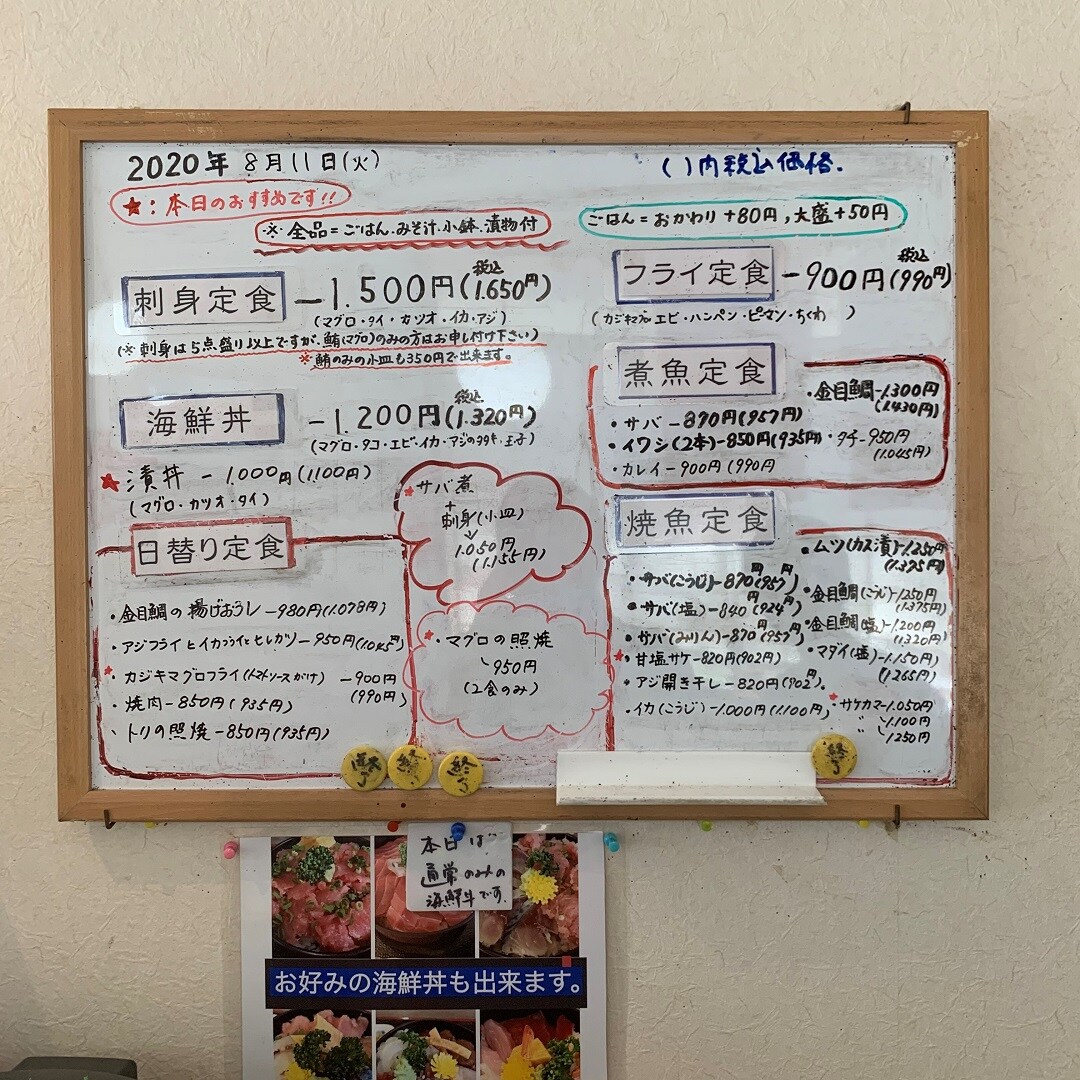 2020年 8月11日(火)
( )内税込価格.
★:本日のおすすめです!!
※全品=ごはん.みそ汁.小鉢.漬物付
ごはん=おかわり+80円,大盛+50円
刺身定食 -1.500円(1.650円)
税込
(マグロ・タイ・カツオ・イカ・アジ)
(※刺身は5点盛り以上ですが、鮪(マグロ)のみの方はお申し付け下さい)
※鮪のみの小皿も350円で出来ます。
海鮮丼 -1.200円(1.320円)
税込
(マグロ・タコ・エビ・イカ・アジのタタキ・玉子)
★漬丼 -1.000円(1.100円)
(マグロ・カツオ・タイ)
日替り定食
・金目鯛の揚げおろし -980円(1.078円)
・アジフライとイカフライとヒレカツ -950円(1.045円)
★・カジキマグロフライ(トマトソースがけ) -900円
(990円)
・焼肉 -850円(935円)
・トリの照焼 -850円(935円)
★サバ煮
+
刺身(小皿)
1.050円
(1.155円)
★・マグロの照焼
950円
(2食のみ)
フライ定食 -900円(990円)
税込
(カジキマグロ エビ・ハンペン・ピーマン・ちくわ )
煮魚定食
・金目鯛-1.300円
(1.430円)
・サバ -870円(957円)
・イワシ(2本)-850円(935円)
・タチ-950円
(1.045円)
・カレイ -900円(990円
焼魚定食
・ムツ(カス漬)-1.250円
(1.375円)
・サバ(こうじ)-870円(957円)
・金目鯛(こうじ)-1.250円
(1.375円)
・サバ(塩)-840円(924円)
・金目鯛(塩)-1.200円
(1.320円)
・サバ(みりん)-870円(957円)
・マダイ(塩)-1.150円)
(1.265円)
★・甘塩サケ-820円(902円)
・アジ開き干し-820円(902円).
・イカ(こうじ)-1.000円(1.100円)
★・サケカマ-1.050円
〃 1.100円
〃 1.250円
終了
終了
終了
終了
本日は
通常のみの
海鮮丼です.
お好みの海鮮丼も出来ます。